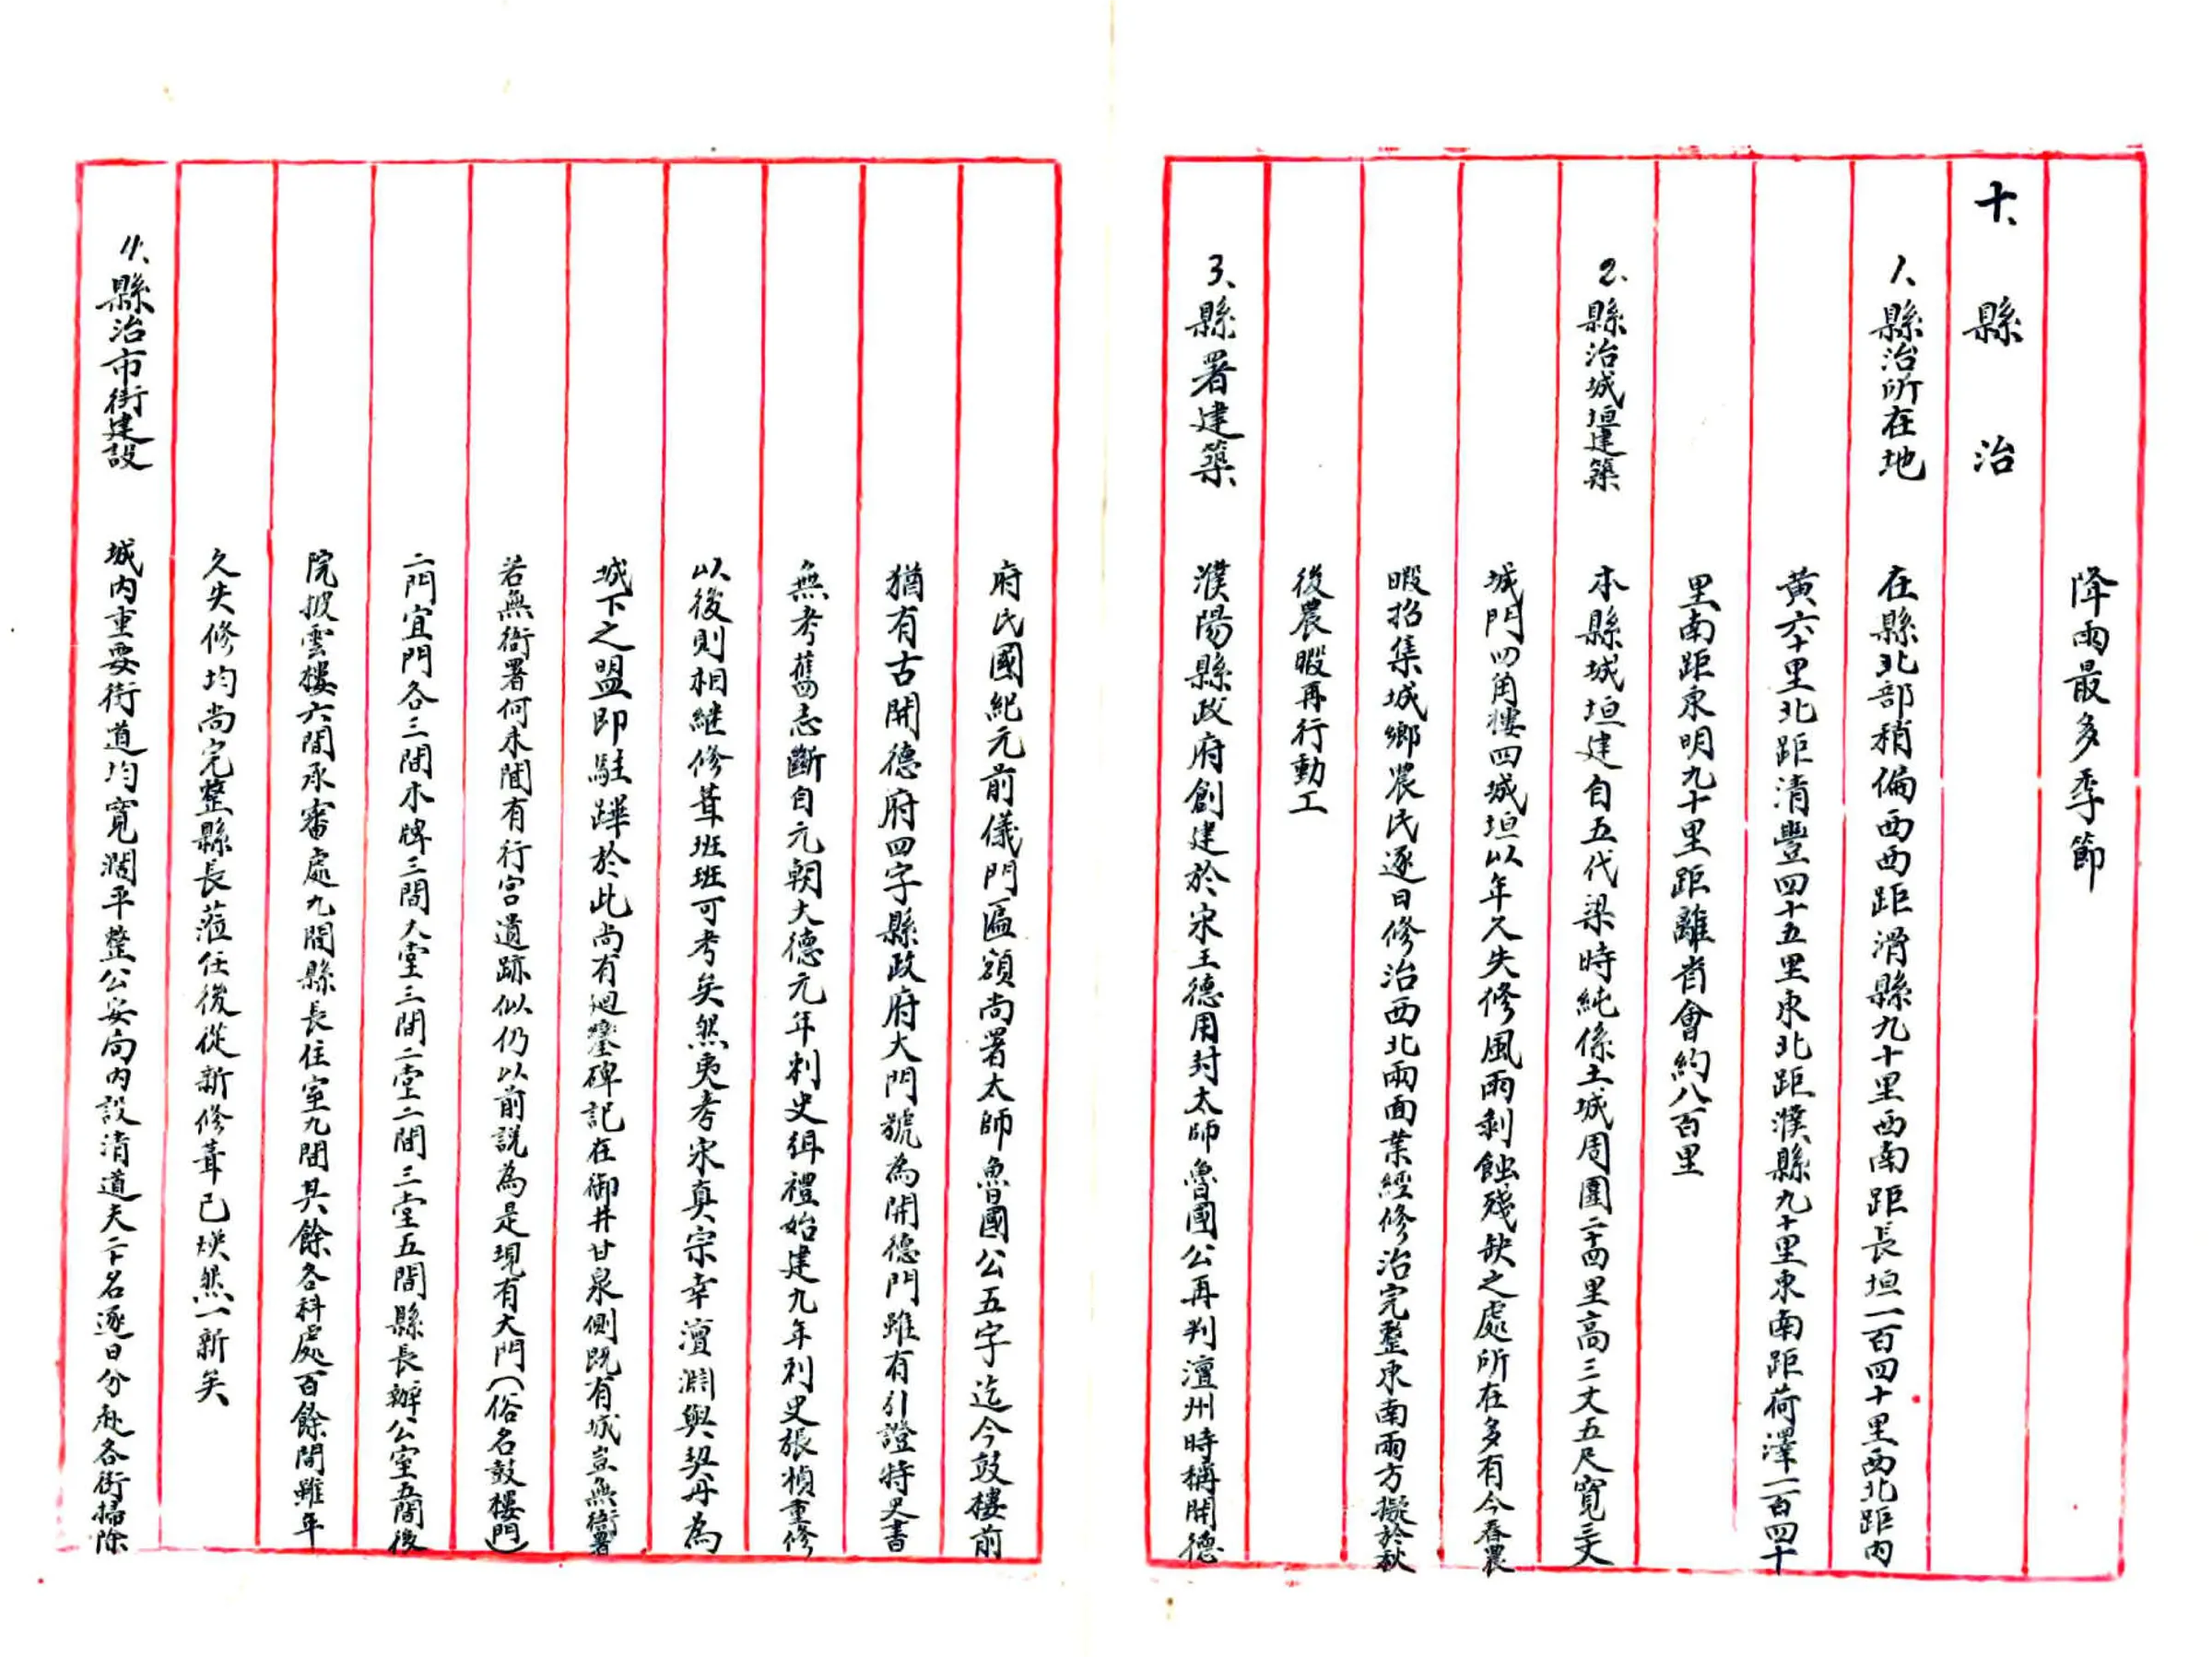 降雨最多季節
十、縣治
1、縣治所在地 在縣北部稍偏西西距滑縣九十里西南距長垣一百四十里西北距內
黃六十里北距清豐四十五里東北距濮縣九十里東南距荷澤一百四十
里南距東明九十里距離省會約八百里
2、縣治城垣建築 本縣城垣建自五代梁時純係土城周圍二十四里高三丈五尺寬三丈
城門四角樓四城垣以年久失修風雨剝蝕殘缺之處所在多有今春農
暇招集城鄉農民逐日修治西北兩面業經修治完整東南兩方擬於秋
後農暇再行動工
3、縣署建築 濮陽縣政府創建於宋王德用封太師魯國公再判澶州時稱開德
府民國紀元前儀門匾額尚署太師魯國公五字迄今鼓樓前
猶有古開德府四字縣政府大門號為開德門雖有引證特史書
無考舊志斷自元朝大德元年刺史緝禮始建九年刺史張楨重修
以後則相継修葺班班可考矣然夷考宋真宗幸澶淵與契丹為
城下之盟即駐蹕於此尚有迴鑾碑記在御井甘泉側既有城豈無衙署
若無衙署何未聞有行宮遺跡似仍以前説為是現有大門（俗名鼓樓門）
二門宜門各三間木牌三間大堂三間二堂二間三堂五間縣長辦公室五間後
院披雲樓六間承審處九間縣長住室九間其餘各科處百餘間雖年
久失修均尚完整縣長蒞任後從新修葺已煥然一新矣
4、縣治市街建設 城內重要街道均寬濶平整公安局內設清道夫二十名逐日分赴各街掃除